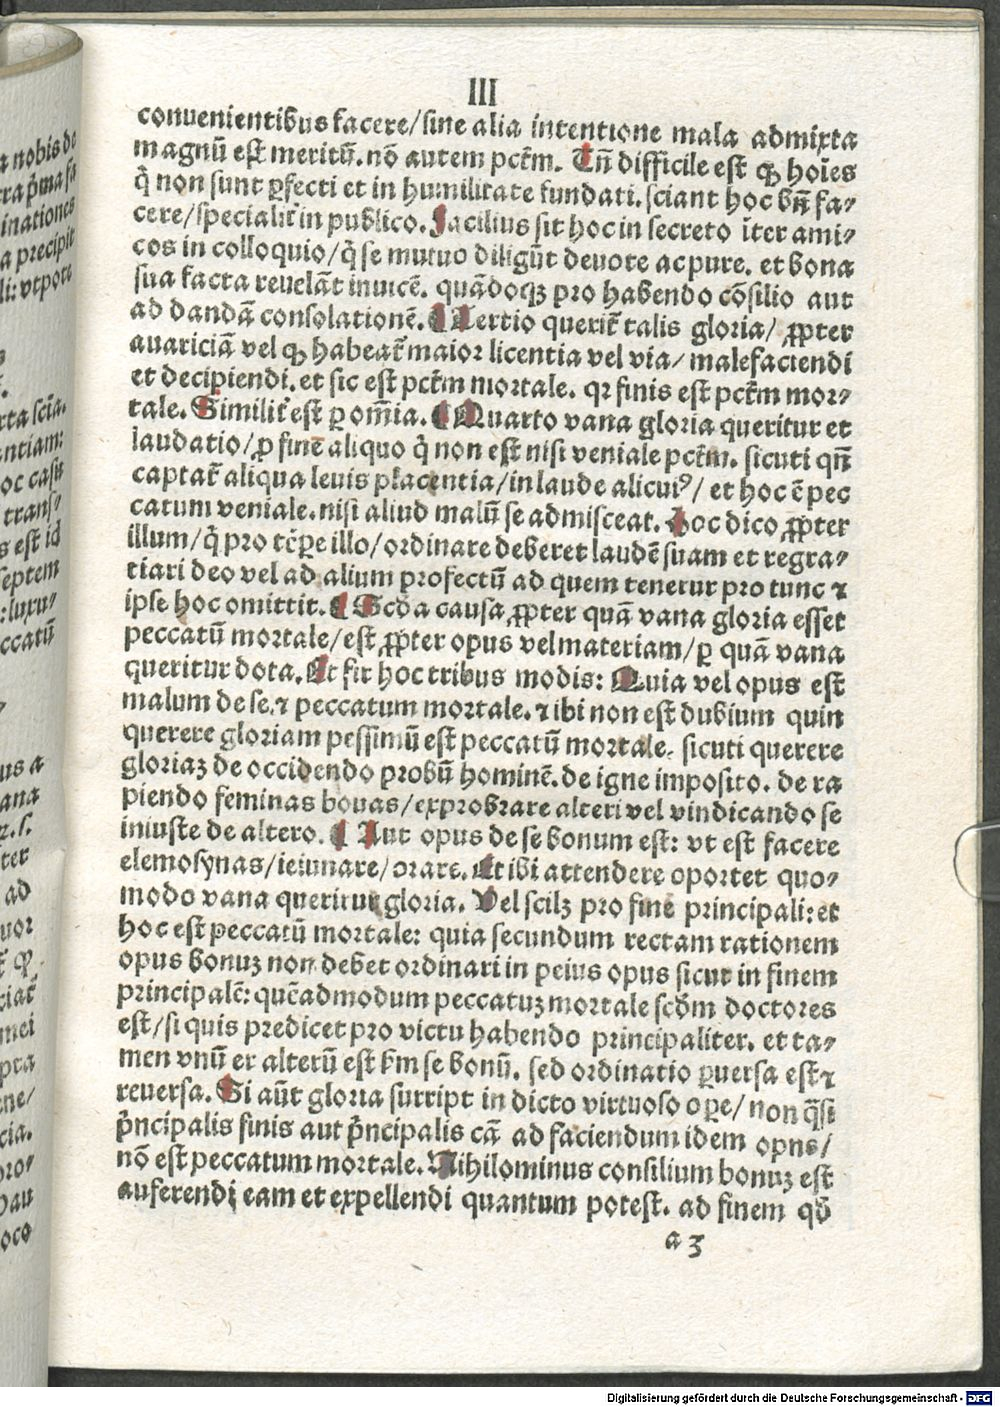 III
conuenientibus facere/sine alia intentione mala admixta
magnū est meritū. nō autem pctm̄. Tn̄ difficile est ꝙ hoīes
q̇ non sunt ꝑfecti et in humilitate fundati. sciant hoc bn̄ fa⸗
cere/specialit̄ in publico. Facilius fit hoc in secreto īter ami⸗
cos in colloquio/q̇ se mutuo diligūt deuote ac pure. et bona
sua facta reuelāt inuicē. quādoqꝫ pro habendo cōsilio aut
ad dandā consolationē. ¶ Tertio querit̄ talis gloria/ ꝓpter
auariciā vel ꝙ habeat̄ maior licentia vel via/ malefaciendi
et decipiendi. et sic est pctm̄ mortale. qꝛ finis est pctm̄ mor⸗
tale. Similit̄ est ꝑ om̄ia. ¶ Quarto vana gloria queritur et
laudatio/ꝓ fine aliquo q̇ non est nisi veniale pctm̄. sicuti qn̄
captat̄ aliqua leuis placentia/in laude alicuiꝰ/ et hoc ē pec
catum veniale. nisi aliud malū se admisceat. Hoc dico ꝓpter
illum/q̇ pro tꝑe illo/ordinare deberet laudē suam et regra⸗
tiari deo vel ad alium profectū ad quem tenetur pro tunc ⁊
ipse hoc omittit. ¶ Scda causa ꝓpter quā vana gloria esset
peccatū mortale/est ꝓpter opus vel materiam/ꝑ quā vana
queritur dota. Et fit hoc tribus modis: Quia vel opus est
malum de se. ⁊ peccatum mortale. ⁊ ibi non est dubium quin
querere gloriam pessimū est peccatū mortale. sicuti querere
gloriaꝫ de occidendo probū hominē. de igne imposito. de ra
piendo feminas bonas/exprobrare alteri vel vindicando se
iniuste de altero. ¶ Aut opus de se bonum est: vt est facere
elemosynas/ieiunare/orare. Et ibi attendere oportet quo⸗
modo vana queritur gloria. Vel scilꝫ pro fine principali: et
hoc est peccatū mortale: quia secundum rectam rationem
opus bonuꝫ non debet ordinari in peius opus sicut in finem
principalē: quēadmodum peccatuꝫ mortale scd̄m doctores
est/si quis predicet pro victu habendo principaliter. et ta⸗
men vnū et alterū est km̄ se bonū. sed ordinatio ꝑuersa est ⁊
reuersa. Si aūt gloria surript in dicto virtuoso oꝑe/ non q̄si
p̄ncipalis finis aut p̄ncipalis cā ad faciendum idem opns/
nō est peccatum mortale. Nihilominus consilium bonuꝫ est
auferendi eam et expellendi quantum potest. ad finem qđ
a 3
a nobis de
inationes
a precipit
li: vtpote
oc casu
trans⸗
s est id
septem
: luxu⸗
ccatū
us a
ana
ter
ad
uor
mei
pta
oco
Digitalisierung gefördert durch die Deutsche Forschungsgemeinschaft - DFG